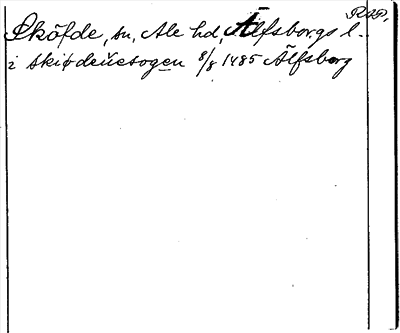 RAP.
Sköfde, sn, Ale hd, Älfsborgs l.
i skiødeuesogen 8/8 1485 Älfsborg